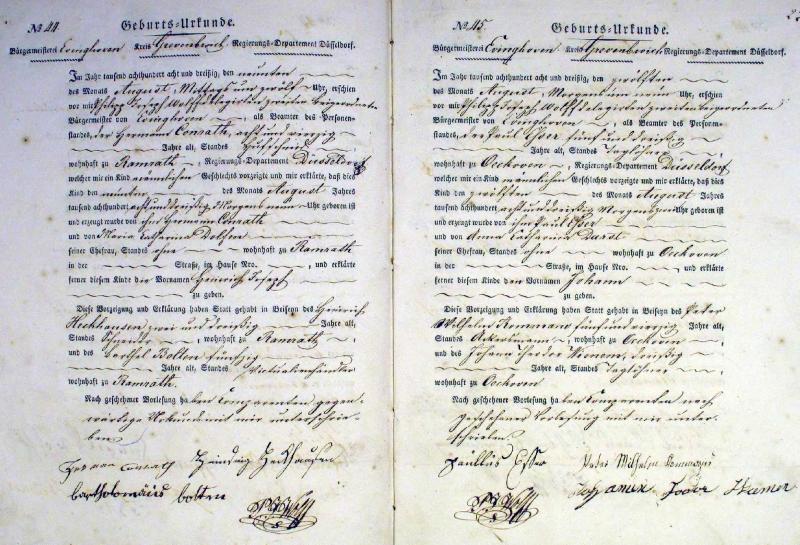 No 44
Geburts-Urkunde.
Bürgermeisterei Evinghoven Kreis Grevenbroich Regierungs-Departement Düsseldorf.
Im Jahr tausend achthundert acht und dreißig, den neunten
des Monats August, Mittags um zwölf Uhr, erschien
vor Philipp Joseph Wolff delegirten zweiten Beigeordneten
Bürgermeister von Evinghoven, als Beamter des Personen-
standes, der Hermann Conrath, acht und vierzig
Jahre alt, Standes Hufschmid
wohnhaft zu Ramrath, Regierungs-Departement Düsseldorf
welcher mir ein Kind männlichen Geschlechts vorzeigte und mir erklärte, daß dies
Kind den neunten des Monats August Jahres
tausend achthundert acht und dreißig Morgens neun Uhr geboren ist
und erzeugt wurde von ihm Hermann Conrath
und von Maria Catharina Dolfen
seiner Ehefrau, Standes ohne wohnhaft zu Ramrath
in der Straße, im Hause Nro. , und erklärte
ferner diesem Kinde die Vornamen Heinrich Joseph
zu geben.
Diese Vorzeigung und Erklärung haben Statt gehabt in Beiseyn des Heinrich
Heckhausen zwei und dreißig Jahre alt,
Standes Schneider, wohnhaft zu Ramrath
und des Barthel Bolten fünfzig
Jahre alt, Standes Victualienhändler
wohnhaft zu Ramrath.
Nach geschehener Vorlesung haben Comparenten gegen-
wärtige Urkunde mit mir unterschrie-
ben
Conrath Heinrich Heckhausen
bartholomäus bolten
No 45.
Geburts-Urkunde.
Bürgermeisterei Evinghoven Kreis Grevenbroich Regierungs-Departement Düsseldorf.
Im Jahr tausend achthundert acht und dreißig, den zwölften
des Monats August, Morgens um neun Uhr, erschien
vor Philipp Joseph Wolff delegirten zweiten Beigeordneten
Bürgermeister von Evinghoven, als Beamter des Personen-
standes, der Paul Esser fünf und dreißig
Jahre alt, Standes Taglöhner
wohnhaft zu Oeckoven, Regierungs-Departement Düsseldorf
welcher mir ein Kind männlichen Geschlechts vorzeigte und mir erklärte, daß dies
Kind den zwölften des Monats August Jahres
tausend achthundert acht und dreißig Morgens Uhr geboren ist
und erzeugt wurde von ihm Paul Esser
und von Anna Catharina Darst
seiner Ehefrau, Standes ohne wohnhaft zu Oeckoven
in der Straße, im Hause Nro. , und erklärte
ferner diesem Kinde die Vornamen Johann
zu geben.
Diese Vorzeigung und Erklärung haben Statt gehabt in Beiseyn des Peter
Wilhelm fünf und vierzig Jahre alt,
Standes Ackersmann, wohnhaft zu Oeckoven
und des Johann dreißig
Jahre alt, Standes Taglöhner
wohnhaft zu Oeckoven
Nach geschehener Vorlesung haben Comparenten nach
geschehener Vorlesung mit mir unter-
schrieben
Paullus Esser Peter Wilhelm